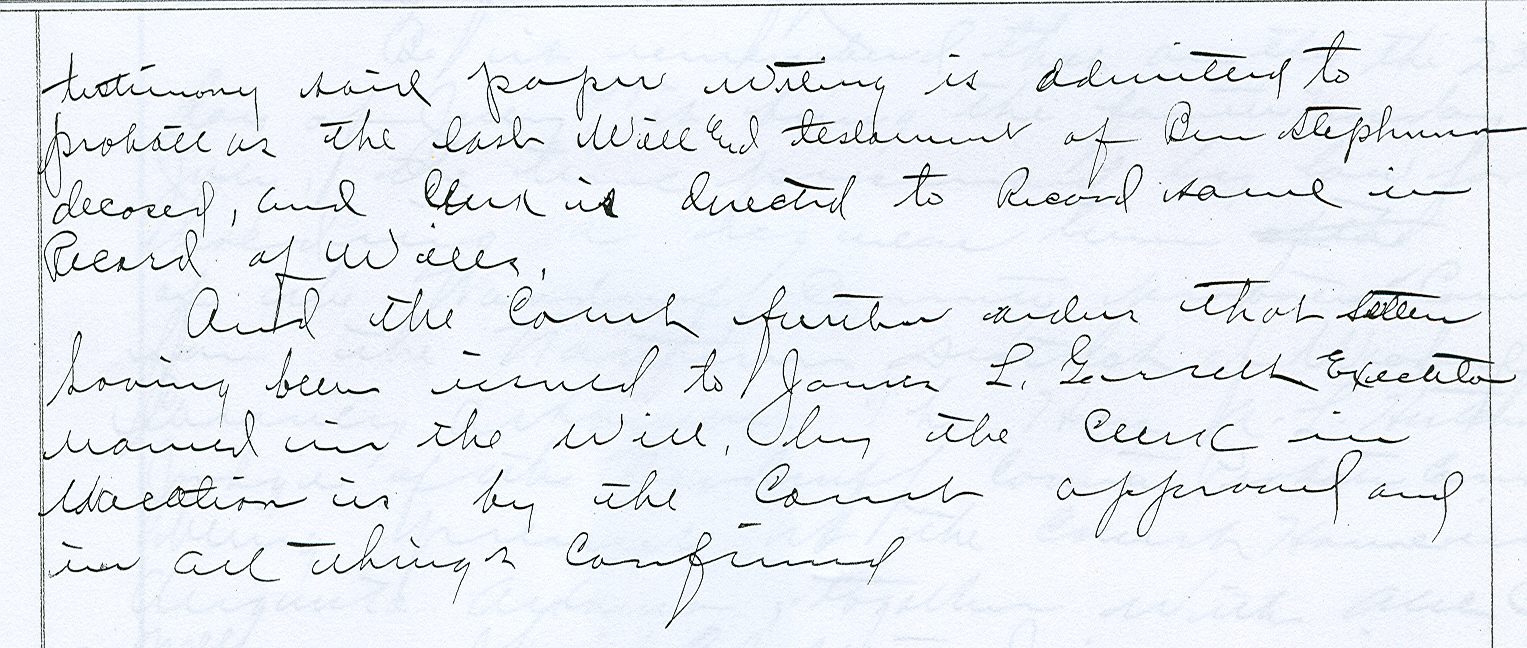 testimony said paper writing is admitted to
probate as the last Will and testament of Ben Stephenson
deceased, and Clerk is directed to Record same in
Record of Wills.
And the Court further orders that letters
having been issued to James L. Garrett Executor
named in the Will, by the Clerk in
Vacation is by the Court approved and
in all things Confirmed